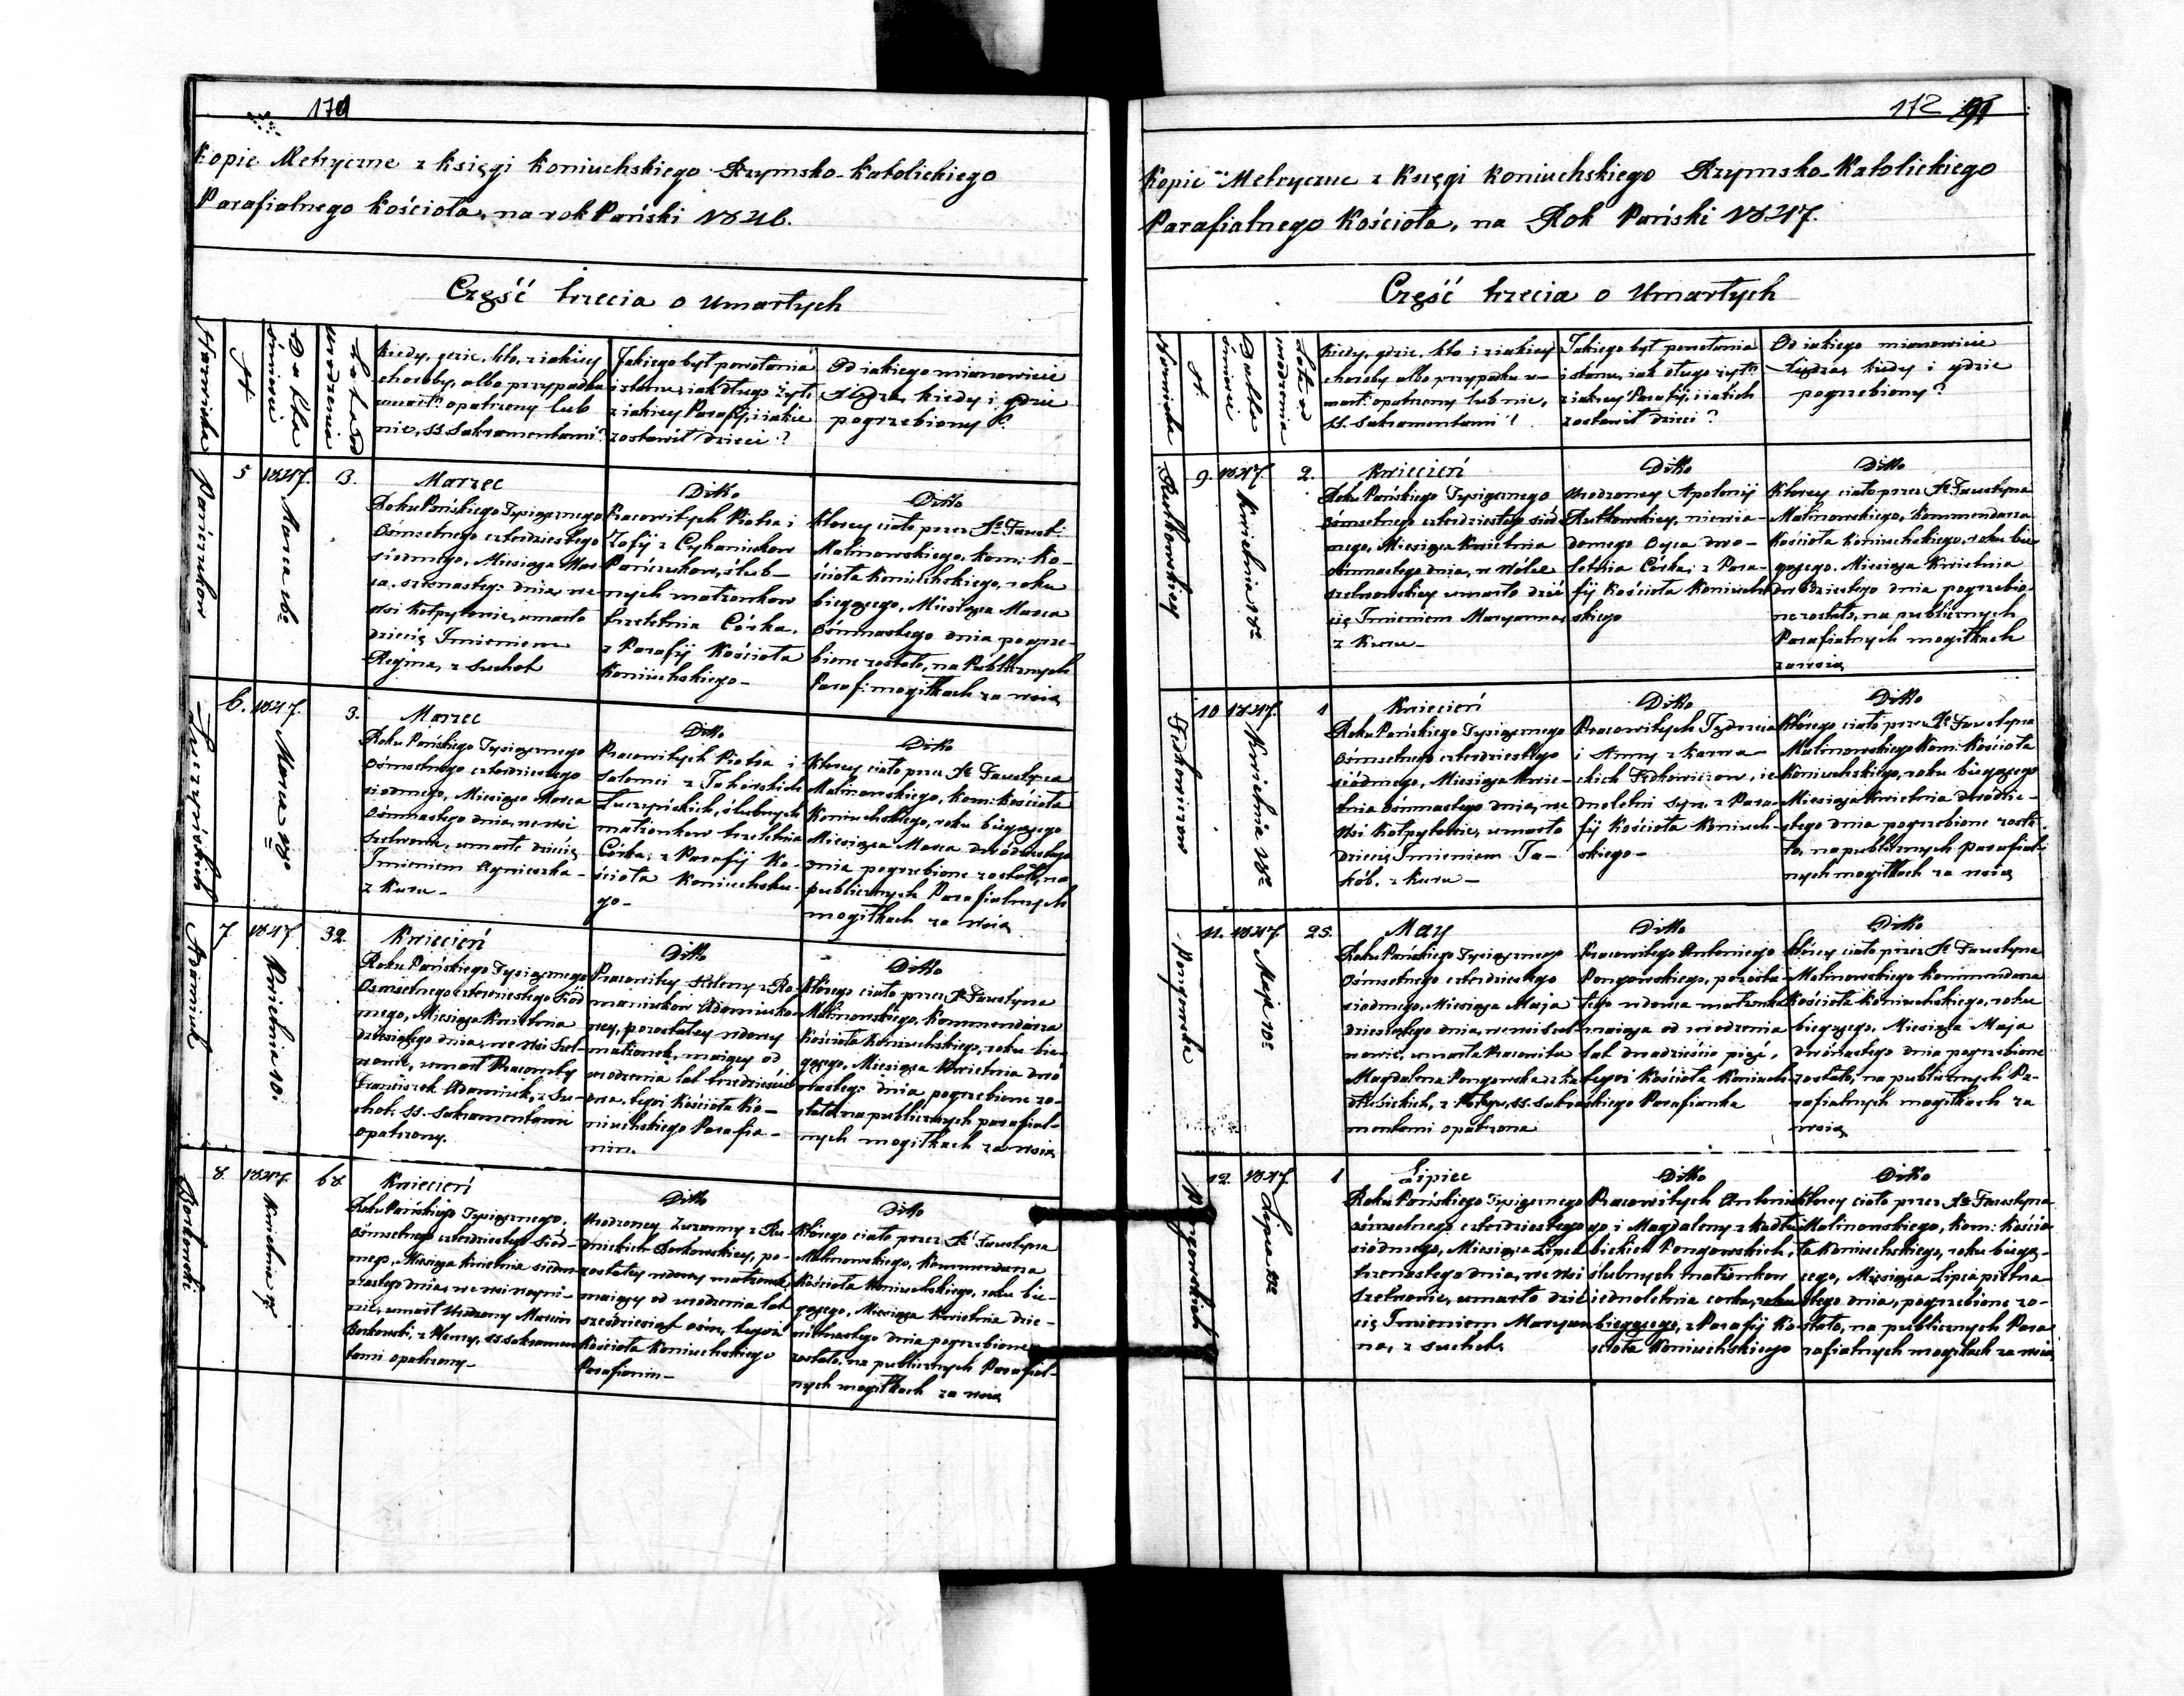 171
Kopie Metryczne z księgi Koniuchskiego Rzymsko-Katolickiego
Parafialnego Kościoła, na rok Pański 1846.
Część trzecia o Umarłych
Nazwiska
N.
Datta śmierci
Lata od urodzenia
Kiedy, gdzie, kto, z iakiey
choroby, albo przypadku
umarł? opatrzony lub
nie, SS. Sakramentami?
Jakiego był powołania
i stanu, iak długo żył,
z iakiey Parafij, i iakie
zostawił dzieci?
Od iakiego mianowicie
Xiędza, kiedy i gdzie
pogrzebiony?
Pańczukow
5
1847. Marca 16.
3.
Marzec
Roku Pańskiego Tysiącznego
Ośmsetnego czterdziestego
siodmego, Miesiąca Mar-
ca, szesnasteg: dnia, we
wsi Kołpytowie, umarło
dziecię Imieniem
Regina, z Suchot
Ditto
Pracowitych Piotra i
Zofij z Cyhaniukow
Pańczukow, ślub-
nych małżonkow
trzyletnia Córka,
z Parafij Kościoła
Koniuchskiego-
Ditto
Którey ciało przez Xa Faust:
Malinowskiego, Kom: Ko-
ścioła Koniuchskiego, roku
bieżącego, Miesiąca Marca
Ośmnastego dnia pogrze-
bione zostało, na Publicznych
Paraf: mogiłkach za wsią
Łuczyńskich
6.
1847. Marca 18go
3.
Marzec
Roku Pańskiego Tysiącznego
Ośmsetnego czterdziestego
siodmego, Miesiąca Marca
Ośmnastego dnia, we wsi
Szelwowie, umarło dziecię
Imieniem Agnieszka-
z Kuru-
Ditto
Pracowitych Piotra i
Salomei z
Łuczyńskich, ślubnych
małżonkow trzyletnia
Córka, z Parafij Ko-
ścioła Koniuchskie-
go-
Ditto
Którey ciało przez Xa Faustyna
Malinowskiego, Kom: Kościoła
Koniuchskiego, roku bieżącego
Miesiąca Marca dwódziestego
dnia pogrzebione zostało, na
publicznych Parafialnych
mogiłkach za wsią
Adamiuk
7
1847 Kwietnia 10.
32.
Kwiecień
Roku Pańskiego Tysiącznego
Osmsetnego czterdziestego Siód
mego, Miesiąca Kwietnia
dziesiątego dnia, we wsi Szel-
wowie, umarł Pracowity
Franciszek Adamiuk, z Su-
chot, SS. Sakramentami
opatrzony.
Ditto
Pracowitey Heleny z Ro-
maniukow Adamiuko-
wey, pozostałey wdowy
małżonek, maiący od
urodzenia lat trzydzieście
dwa, tegoż Kościoła Ko-
niuchskiego Parafia-
nin.
Ditto
Którego ciało przez Xa Faustyna
Malinowskiego, Kommendarza
Kościoła Koniuchskiego, roku bie-
żącego, Miesiąca Kwietnia dwó
nasteg: dnia pogrzebione zo-
stało na publicznych parafial-
nych mogiłkach za wsią
Borkowski
8.
1847. Kwietnia 17.
68.
Kwiecień
Roku Pańskiego Tysiącznego,
Ośmsetnego czterdziestego Siód-
mego, Miesiąca Kwietnia siedm
nastego dnia, we wsi Woyni-
nie, umarł Urodzony Marcin
Borkowski, z SS. Sakramen
tami opatrzony-
Ditto
Urodzoney Zuzanny z Ru-
dnickich Borkowskiey, po-
zostałey wdowy małżonek
maiący od urodzenia lat
sześdziesiąt osm, tegoż
Kościoła Koniuchskiego
Parafianin-
Ditto
Którego ciało przez Xa Faustyna
Malinowskiego, Kommendarza
Kościoła Koniuchskiego, roku bie-
żącego, Miesiąca Kwietnia dzie-
więtnastego dnia pogrzebione
zostało, na publicznych Parafial-
nych mogiłkach za wsią
172
Kopie Metryczne z Księgi Koniuchskiego Rzymsko-Katolickiego
Parafialnego Kościoła, na Rok Pański 1847.
Część trzecia o Umarłych
Nazwiska
N.
Datta śmierci
Lata od urodzenia
Kiedy, gdzie, kto i z iakiey
choroby albo przypadku u-
marł: opatrzony lub nie,
SS. Sakramentami?
Jakiego był powołania
i stanu, iak długo żył?
z iakiey Parafij, i iakich
zostawił dzieci?
Od iakiego mianowicie
Xiędza, kiedy i gdzie
pogrzebiony?
Rutkowskiey
9.
1847. Kwietnia 18.
2.
Kwiecień
Roku Pańskiego Tysiącznego
Ośmsetnego czterdziestego siód
mego, Miesiąca Kwietnia
ośmnastego dnia, w Wólce
Szelwowskiey umarło dzie
cię Imieniem Maryanna,
z Kuru-
Ditto
Urodzoney Apolonij
Rutkowskiey, niewia-
domego Oyca dwó-
letnia Córka, z Para-
fij Kościoła Koniuch
skiego
Ditto
Którey ciało przez Xa Faustyna
Malinowskiego, Kommendarza
Kościoła Koniuchskiego, roku bie
żącego, Miesiąca Kwietnia
dwódziestego dnia pogrzebio-
ne zostało, na publicznych
Parafialnych mogiłkach
za wsią
Fedkowiczow
10
1847. Kwietnia 18.
1
Kwiecień
Roku Pańskiego Tysiącznego
Ośmsetnego czterdziestego
siódmego, Miesiąca Kwie-
tnia Ośmnastego dnia, we
wsi Kołpytowie, umarło
Dziecię Imieniem Ja-
kób, z Kuru-
Ditto
Pracowitych Jędrzeia
i Anny z Karwa-
ckich Fedkowiczow, ie-
dnoletni Syn, z Para-
fij Kościoła Koniuch-
skiego-
Ditto
Którego ciało przez Xa Faustyna
Malinowskiego Kom: Kościoła
Koniuchskiego, roku bieżącego
Miesiąca Kwietnia dwódzie-
stego dnia pogrzebione zosta-
ło, na publicznych parafial-
nych mogiłkach za wsią
Pongowska
11.
1847. Maja 10.
25.
May
Roku Pańskiego Tysiącznego
Ośmsetnego czterdziestego
siodmego, Miesiąca Maja
dziesiątego dnia, we wsi Szel-
wowie, umarła Pracowita
Magdalena Pongowska z Ka
dłubickich, z SS. Sakra-
mentami opatrzona
Ditto
Pracowitego Antoniego
Pongowskiego, pozosta-
łego wdowca małżonka
maiąca od urodzenia
lat dwadzieścia pięć,
tegoż Kościoła Koniuch-
skiego Parafianka
Ditto
Którey ciało przez Xa Faustyna
Malinowskiego Kommendarza
Kościoła Koniuchskiego, roku
bieżącego, Miesiąca Maja
dwónastego dnia pogrzebione
zostało, na publicznych Pa-
rafialnych mogiłkach za
wsią
Pongowskich
12.
1847. Lipca 13.
1
Lipiec
Roku Pańskiego Tysiącznego
ośmsetnego czterdziestego
siódmego, Miesiąca Lipca
trzynastego dnia, we wsi
Szelwowie, umarło dzie
cię Imieniem Maryan
na, z suchot
Ditto
Pracowitych Antonie
go i Magdaleny z Kadłu
bickich Pongowskich,
ślubnych małżonkow
iednoletnia corka, roku
bieżącego, z Parafij Ko
ścioła Koniuchskiego
Ditto
Którey ciało przez Xa Faustyna
Malinowskiego, Kom: Kościo
ła Koniuchskiego, roku bieżą-
cego, Miesiąca Lipca piętna
stego dnia, pogrzebione zo-
stało, na publicznych Para
rafialnych mogiłkach za wsią